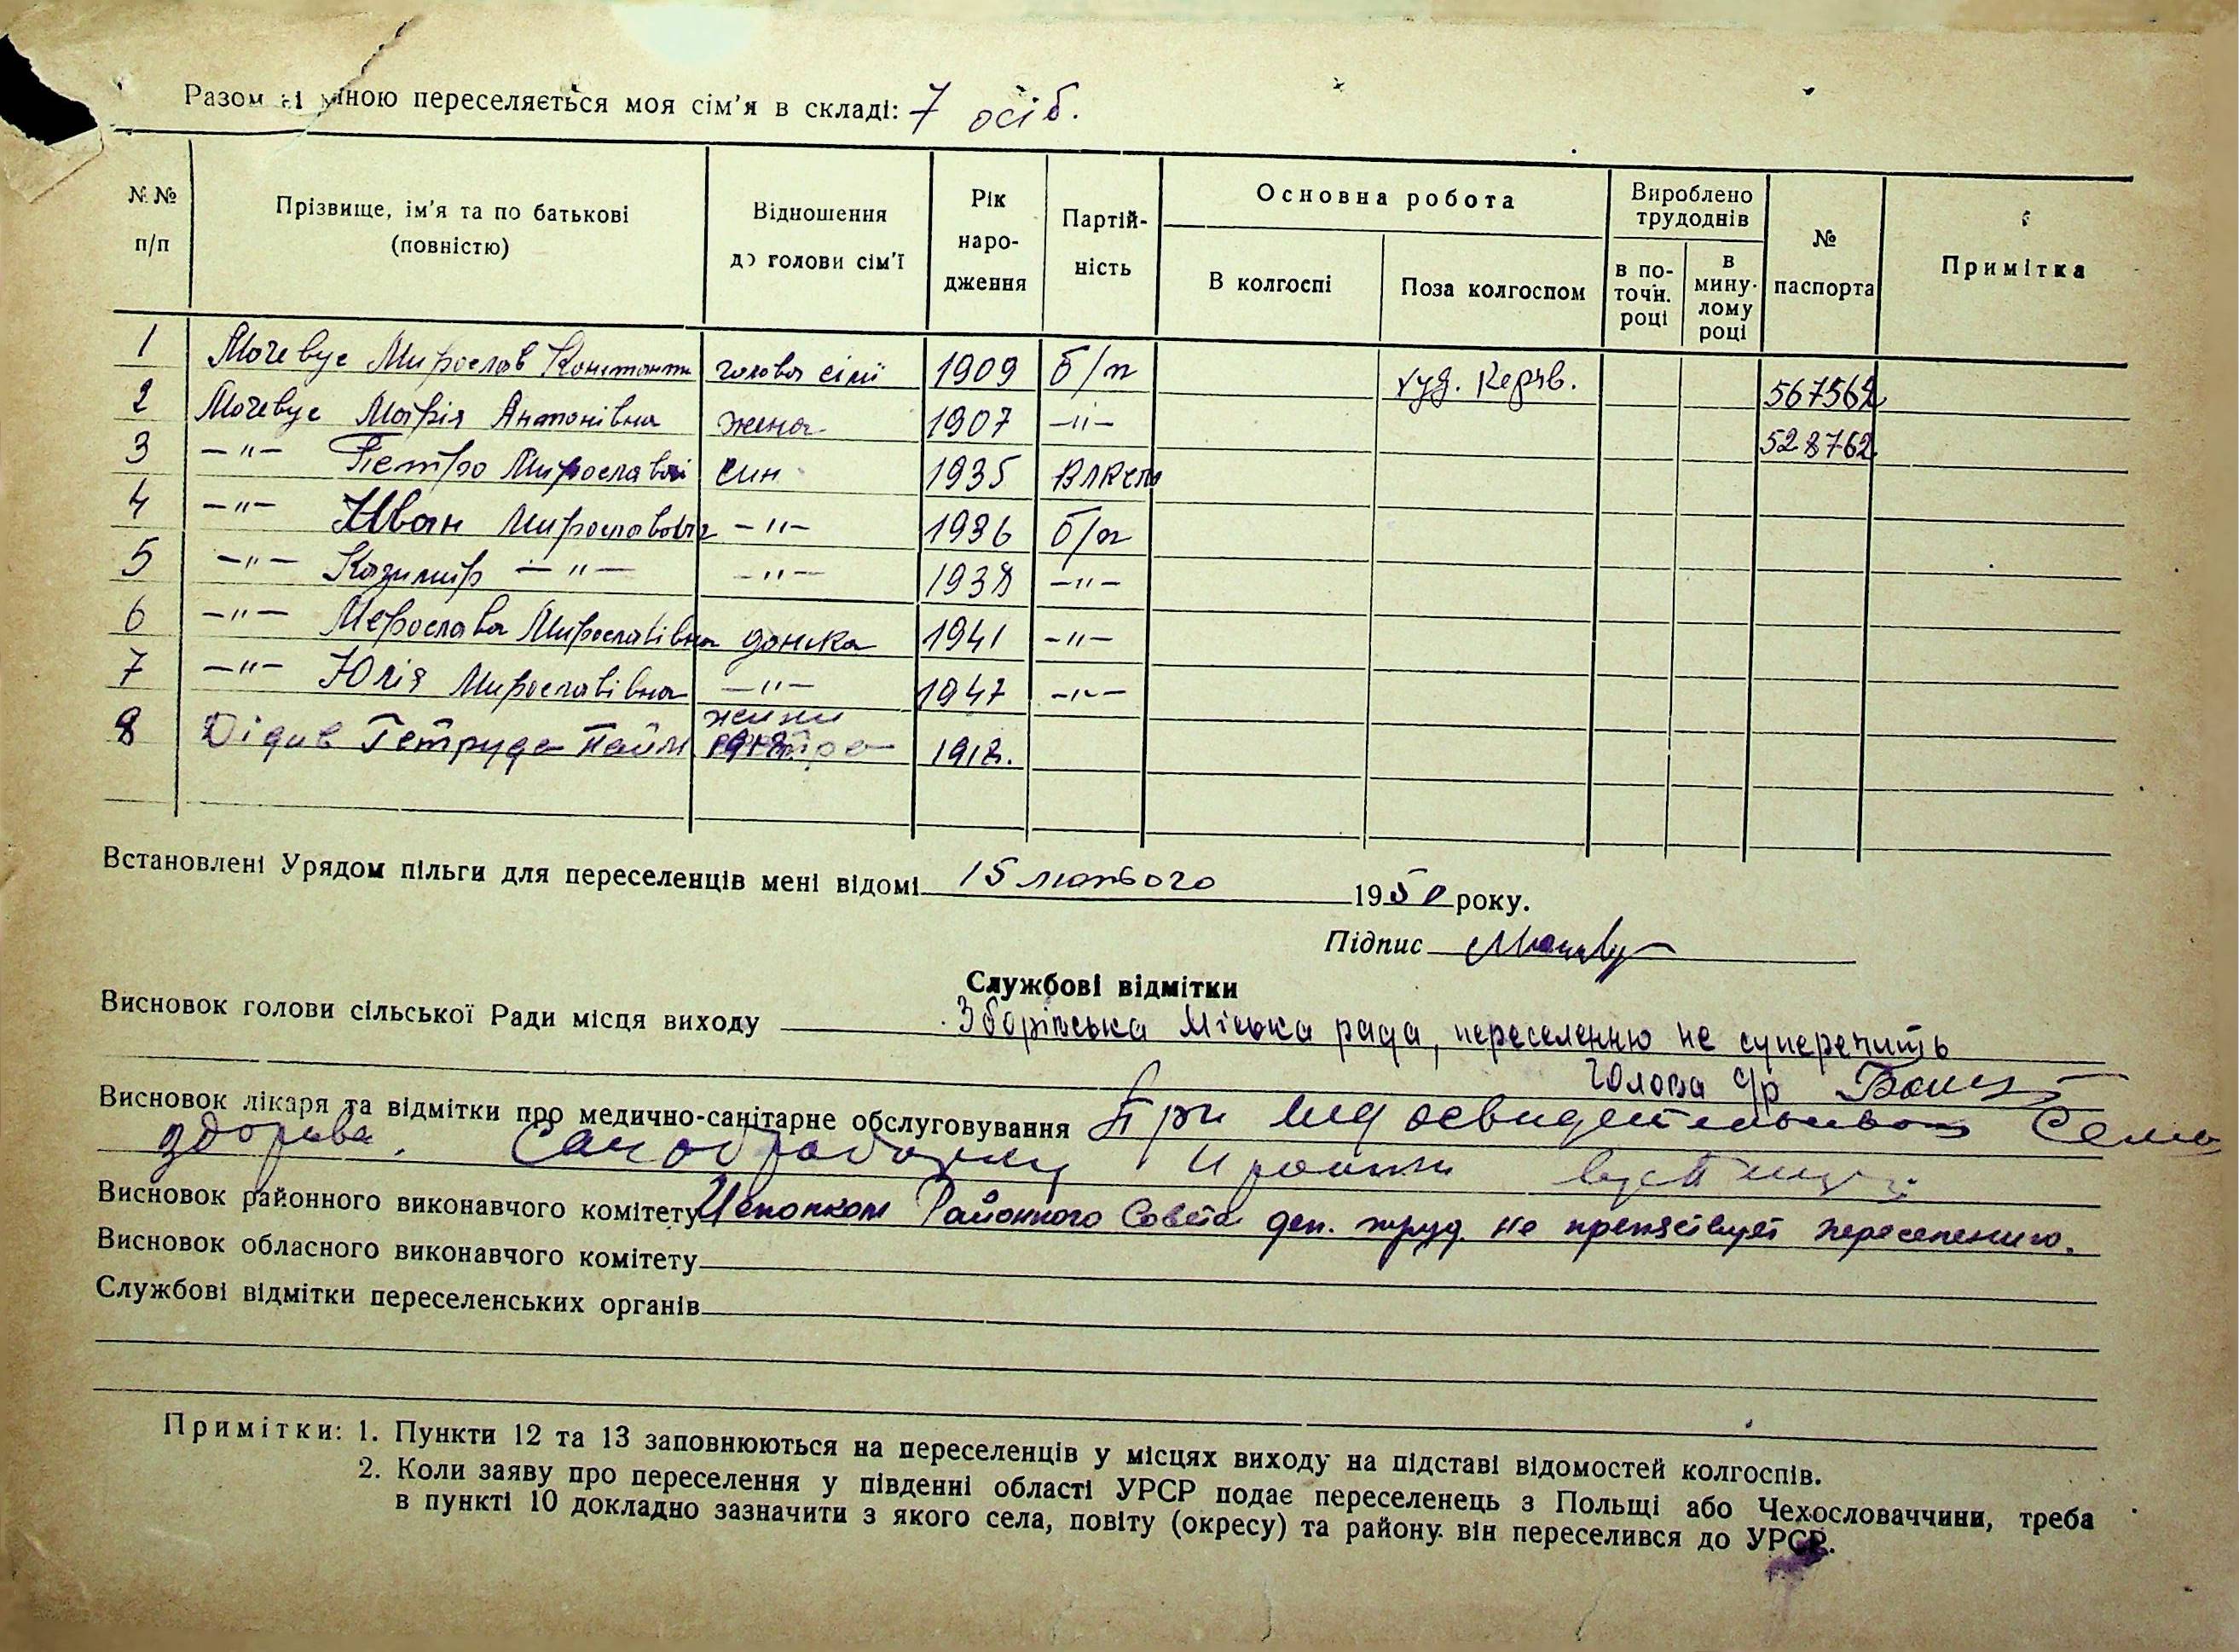 Разом зі мною переселяється моя сім'я в складі: 7 осіб.
№№ п/п
Прізвище, ім'я та по батькові (повністю)
Відношення до голови сім'ї
Рік народження
Партій-ність
Основна робота
В колгоспі
Поза колгоспом
Вироблено трудоднів
в по-точн. році
в мину-лому році
№ паспорта
Примітка
1 Мочевус Мирослав Константи голова сімї 1909 б/п худ. Керів. 567562
2 Мочевус Марія Антонівна жена 1907 -"- 528762
3 -"- Петро Мирославов син 1935 ВЛКСМ
4 -"- Іван Мирославович -"- 1936 б/п
5 -"- Казимир -"- -"- 1938 -"-
6 -"- Мерослава Мирославівна донька 1941 -"-
7 -"- Юлія Мирославівна -"- 1947 -"-
8 Дідив Гетруда Павл жинки сестра 1918.
Встановлені Урядом пільги для переселенців мені відомі 15 лютого 1950 року.
Підпис
Службові відмітки
Висновок голови сільської Ради місця виходу Зборівська Міська рада, переселенню не суперечить
Голова с/р
Висновок лікаря та відмітки про медично-санітарне обслуговування При мед освидетельствован Семья
здорова. Сан обработку
Висновок районного виконавчого комітету Исполком Районного Совета деп. труд. не препятствует переселению.
Висновок обласного виконавчого комітету
Службові відмітки переселенських органів
Примітки: 1. Пункти 12 та 13 заповнюються на переселенців у місцях виходу на підставі відомостей колгоспів.
2. Коли заяву про переселення у південні області УРСР подає переселенець з Польщі або Чехословаччини, треба
в пункті 10 докладно зазначити з якого села, повіту (окресу) та району він переселився до УРСР.